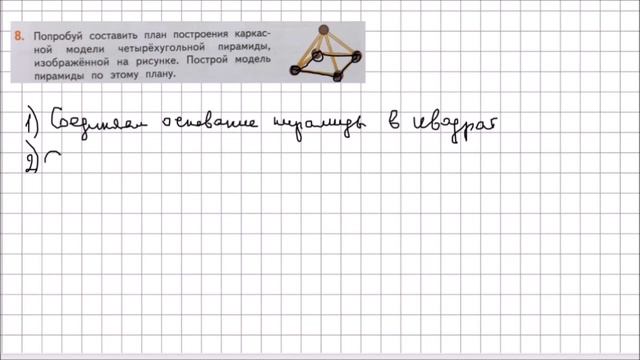 8. Попробуй составить план построения каркас-
ной модели четырёхугольной пирамиды,
изображённой на рисунке. Построй модель
пирамиды по этому плану.
1) Соединяем основание пирамиды в квадрат
2) С